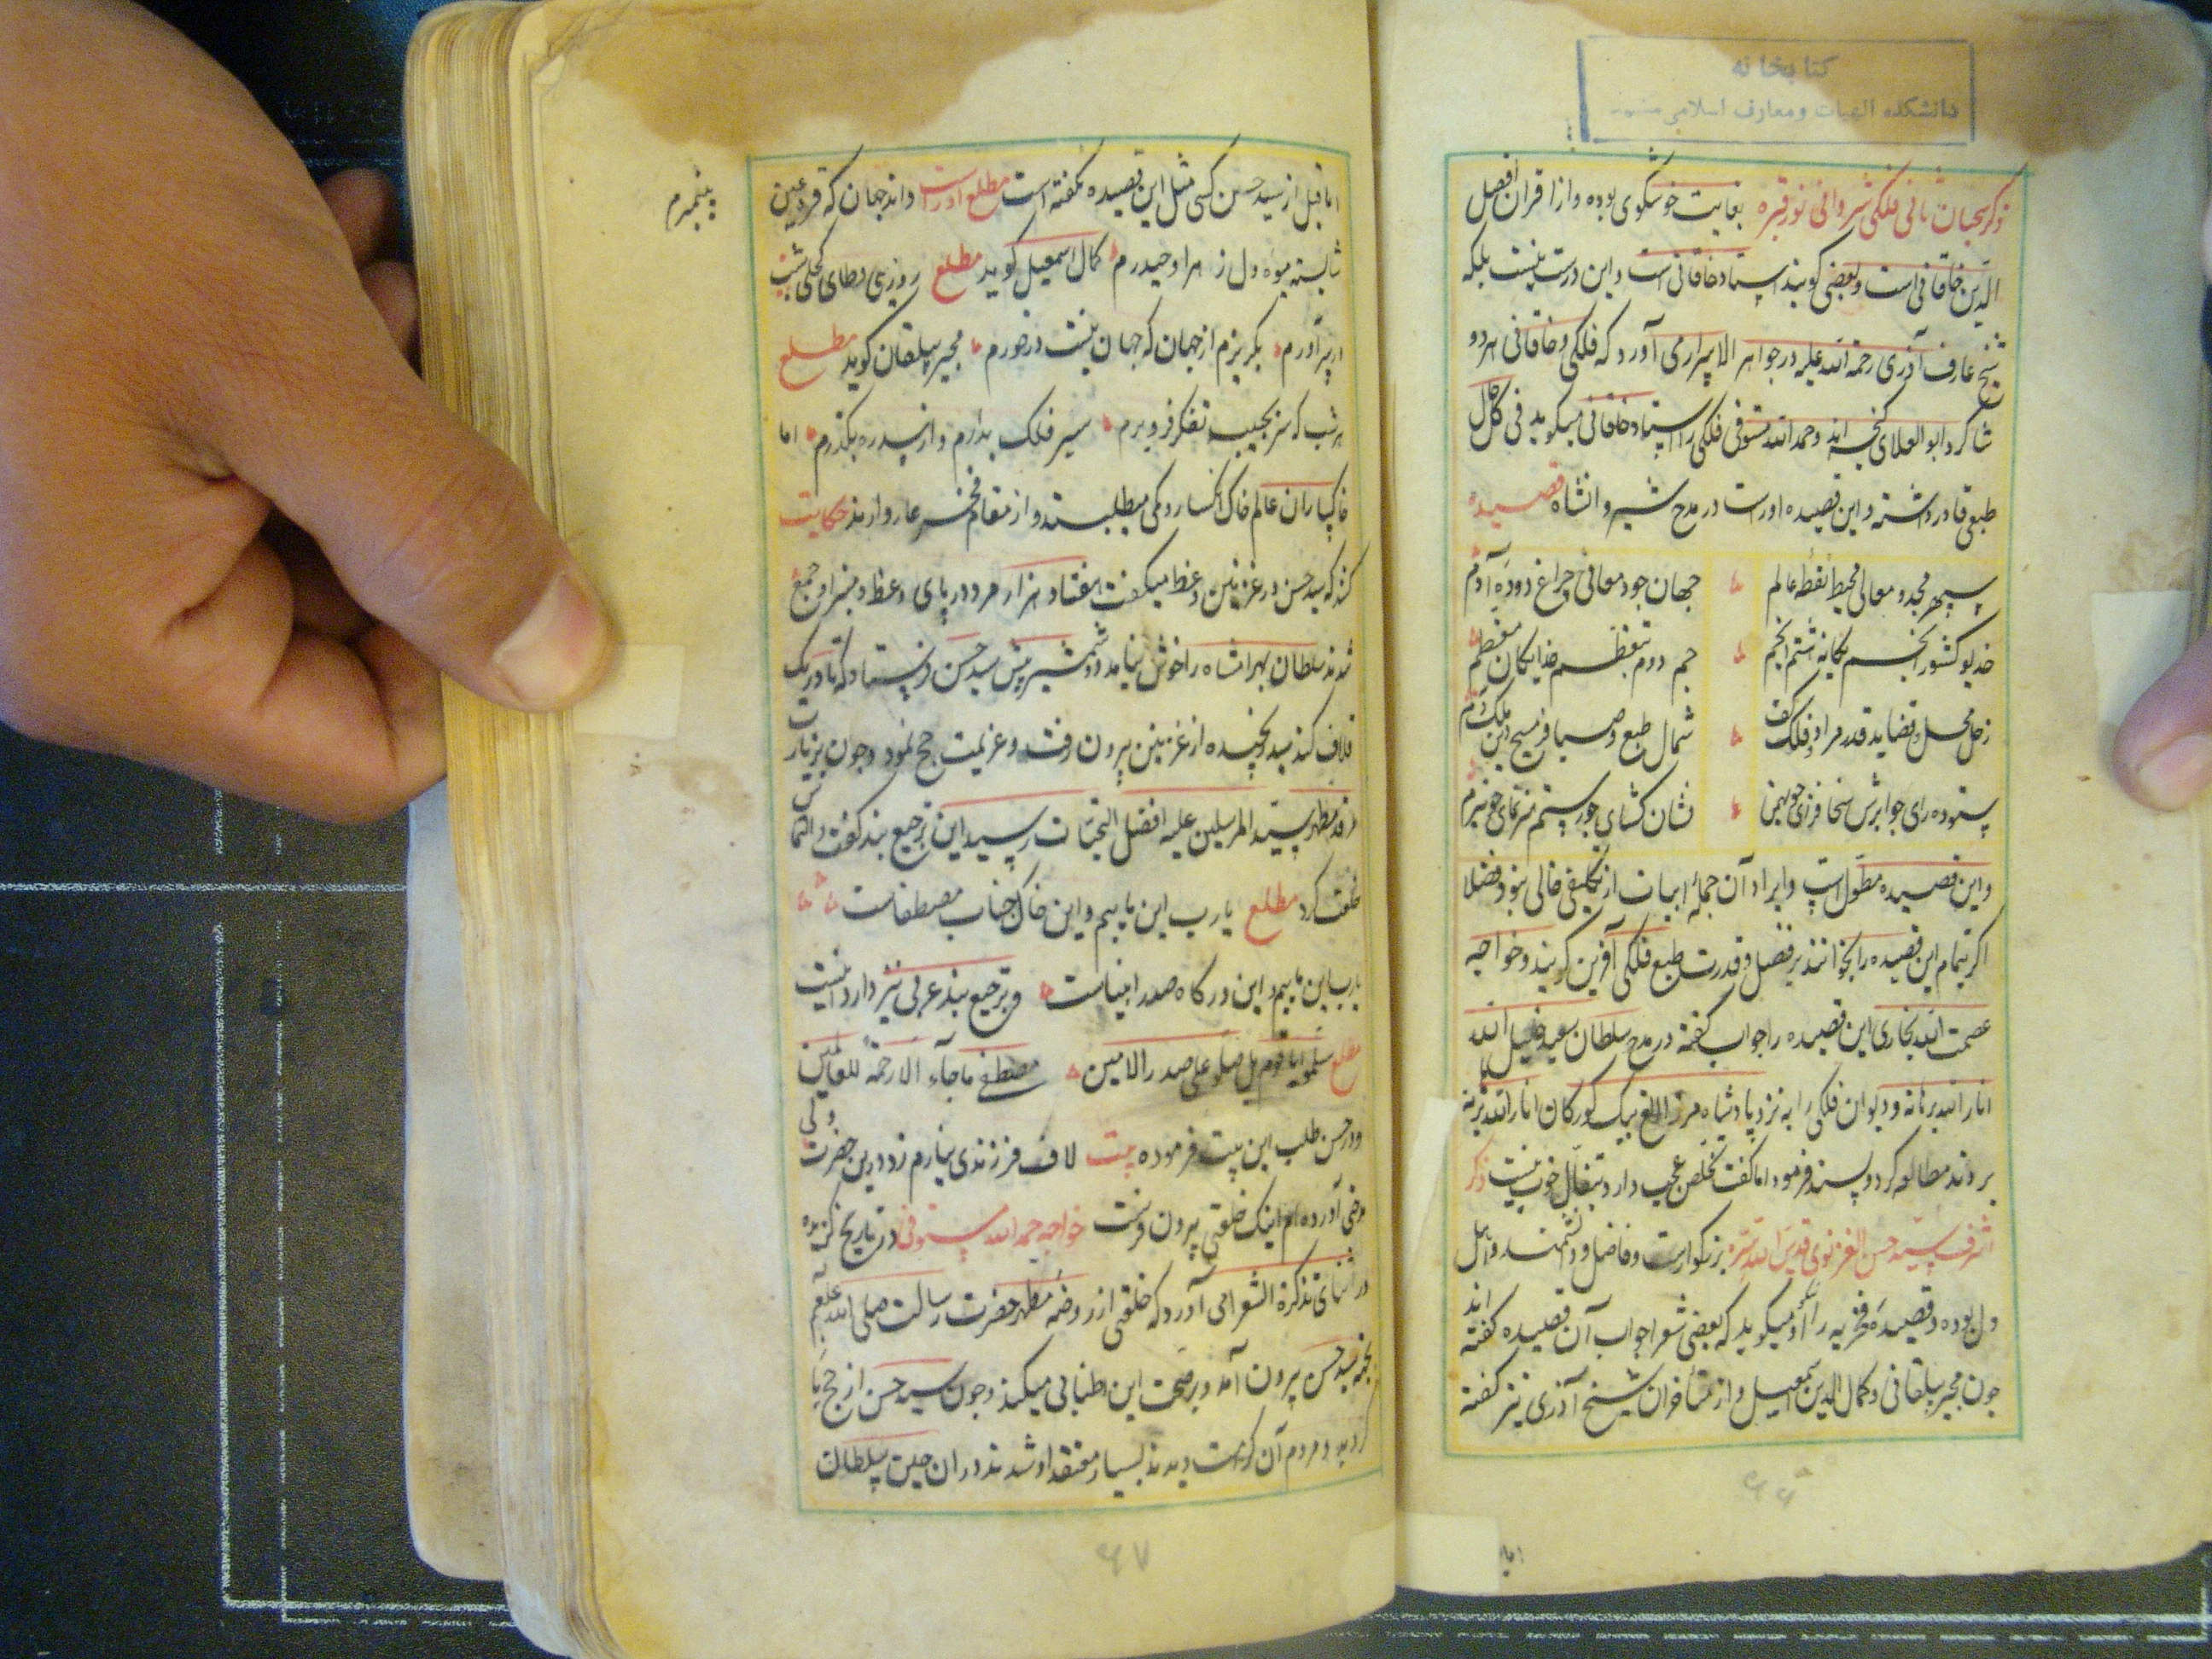 کتابخانه
دانشکده الهیات و معارف اسلامی مشهد
ذکر سحبان ثانی فلکی شروانی نور قبره بغایت خوشگوی بوده و از اقران افضل
الدین خاقانی است و بعضی کویند استاد خاقانی است و این درست نیست بلکه
شیخ عارف آذری رحمة الله علیه در جواهر الاسرار می آورد که فلکی و خاقانی هر دو
شاکرد ابو العلای کنجه اند و حمد الله مستوفی فلکی را استاد خاقانی میکوید فی کل حال
طبعی قادر داشته و این قصیده اوراست در مدح شیروانشاه قصیده
سپهر مجد و معالی محیط نقطه عالم جهان جود و معانی چراغ دوده آدم
خدیو کشور انجم یکانه اشتم انجم جم دوم تعظم خدایکان معظم
زحل محل و قضاید قدر مراد و فلک کف شمال طبع و صبا فر مسیح دین ملک دم
ستوده رای جو ابرش سخا فزای جو بهمن نشان کشای جو رستم هنر نمای جو نیرم
و این قصیده مطول است و ایراد آن جملۀ ابیات از تکلیفی خالی نبود و فضلا
اکر تمام این قصیده را بخوانند بر فضل و قدرت طبع فلکی آفرین کویند و خواجه
عصمت الله بخاری این قصیده را جواب کفته در مدح سلطان سعید خلیل الله
انار الله برهانه و دیوان فلکی را به نزد پادشاه مرزا الغ بیک کورکان انار الله برهانه
بردند مطالعه کرد و پسند فرمود اما کفت تخلص عجیب دارد تفأل خوب نیست ذکر
اشرف سید حسن الغزنوی قدس الله سره بزرکوارست و فاضل و دانشمند و اهل
دل بوده و قصیدۀ فخریه را او میکوید که بعضی شعرا جواب آن قصیده کفته اند
جون مجیر بیلقانی و کمال الدین اسمعیل و از متأخران شیخ آذری نیز کفته
۶۶
اما
اما قبل از سید حسن کسی مثل این قصیده نکفته است مطلع اوراست داند جهان که قرة عین
پیغمبرم
شایسته میوه دل زهرا و حیدرم کمال اسمعیل کوید مطلع روزی وطای کحلی شب
از سر آورم بکریزم از جهان که جهان نیست درخورم مجیر بیلقان کوید مطلع
هر شب که سر بجیب تفکر فرو برم سیر فلک بدرم و از سدره بکذرم اما
خاکساران عالم خاک انکسار دمی مطلبند و از مقام فخر عار دارند حکایت
کنند که سید حسن در غزنین وعظ میکفت هفتاد هزار مرد در پای وعظ و منبر او جمع
شدند سلطان بهرامشاه را خوش نیامد دو شمشیر پیش سید حسن فرستاد که تا در یک
غلاف کند سید رنجیده از غزنین بیرون رفت و عزیمت حج نمود و جون بزیارت
مرقد مطهر سید المرسلین علیه افضل التحیات رسید این ترجیع بند کفت و التماس
خلعت کرد مطلع یا رب این ماییم و این خاک جناب مصطفاست
یا رب این ماییم و این درکاه صدر انبیاست و ترجیع بند عربی نیز دارد اینست
مطلع سلموا یا قوم بل صلوا علی صدر الامین مصطفی ما جآء الا رحمة للعالمین
و در حسن طلب این بیت فرموده بیت لاف فرزندی نیارم زد درین حضرت ولی
مدحی آورده ام اینک خلعتی بیرون فرست خواجه حمد الله مستوفی در تاریخ کزیده
در اثنای تذکرة الشعرا می آورد که خلعتی از روضۀ مطهر حضرت رسالت صلی الله علیه و آله
بجهة سید حسن بیرون آمد و بر صحت این اطنابی میکند و جون سید حسن از حج باز
کردید و مردم آن کرامت دیدند بسیار معتقد او شدند در ان حین سلطان
۶۷